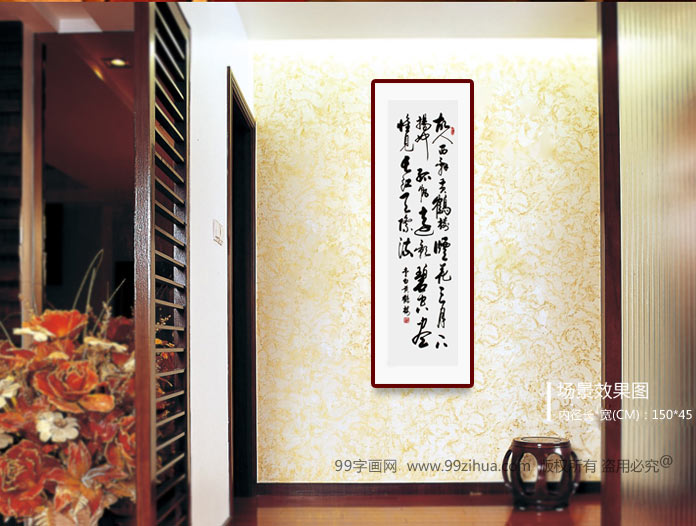 故人西辞黄鹤楼煙花三月下
揚州孤帆遠影碧空尽
惟見長江天際流
李白黄鹤楼
场景效果图
内径长*宽(CM)：150*45
99字画网 www.99zihua.com 版权所有 盗用必究@